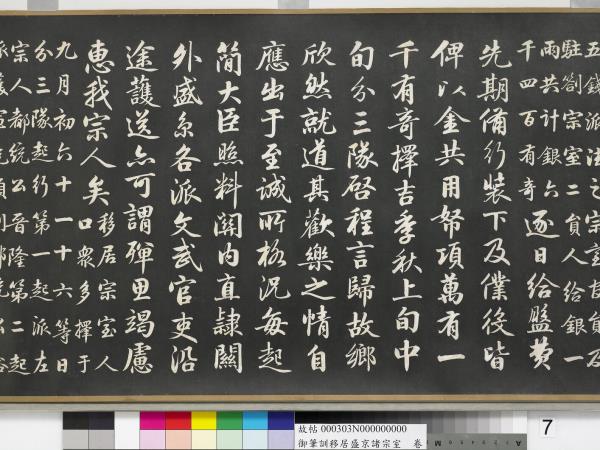 駐劄宗室二員人給銀一
兩共計銀六
千四百有奇
逐日給盤費
先期備行裝下及僕從皆
俾以金共用帑項萬有一
千有奇擇吉季秋上旬中
旬分三隊啓程言歸故鄉
欣然就道其歡樂之情自
應出于至誠所格況每起
簡大臣照料關內直隸關
外盛京各派文武官吏沿
途護送亦可謂殫思竭慮
惠我宗人矣
移居宗室人
口衆多擇于
九月初六十一十六等日
分三隊起行第一起派左
宗人都統公晉隆第二起
故帖 000303N000000000
御筆訓移居盛京諸宗室 卷
7